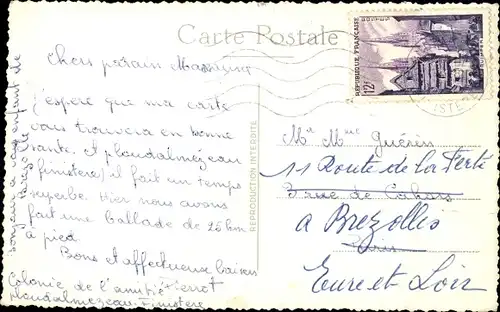 Carte Postale
RÉPUBLIQUE FRANÇAISE
POSTES
12F
Chers parain
j'espère que ma carte
vous trouvera en bonne
santé. et ploudalmézeau
(finistère) il fait un temps
superbe. Hier nous avons
fait une ballade de 26 km
à pied
Bons et affectueux baisers
Pierrot
Colonie de l'
ploudalmezeau. Finistère
REPRODUCTION INTERDITE
Mr Mme Guérin
11 Route de la Ferté
3 rue de Cahors
à Brezollis
Paris
Eure et Loir